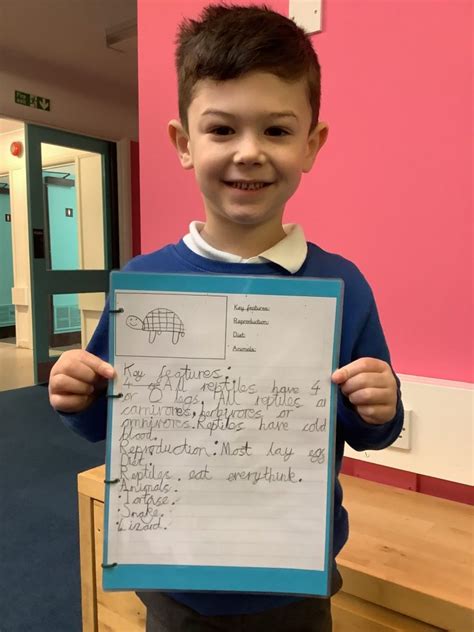 Key features:
Reproduction:
Diet:
Animals:
Key features:
All reptiles have 4
or 0 legs. All reptiles a
carnivores, herbivores or
omnivores. Reptiles have cold
blood.
Reproduction: Most lay egg
Diet.
Reptiles eat everythink.
Animals
• Tortase.
• Snake.
• Lizard.